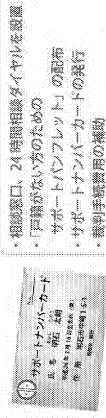 ・相談窓口、24時間相談ダイヤルを設置
・「戸籍がない方のための
サポートパンフレット」の配布
・サポートナンバーカードの発行
・裁判手続費用の補助
サポートナンバーカード
氏名 明石 太郎
住所 明石市中崎1-5-1